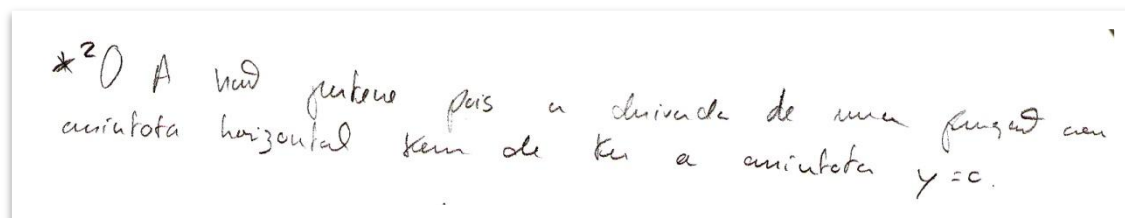 *² O A não pertence pois a derivada de uma função com
assíntota horizontal tem de ter a assíntota y = 0.